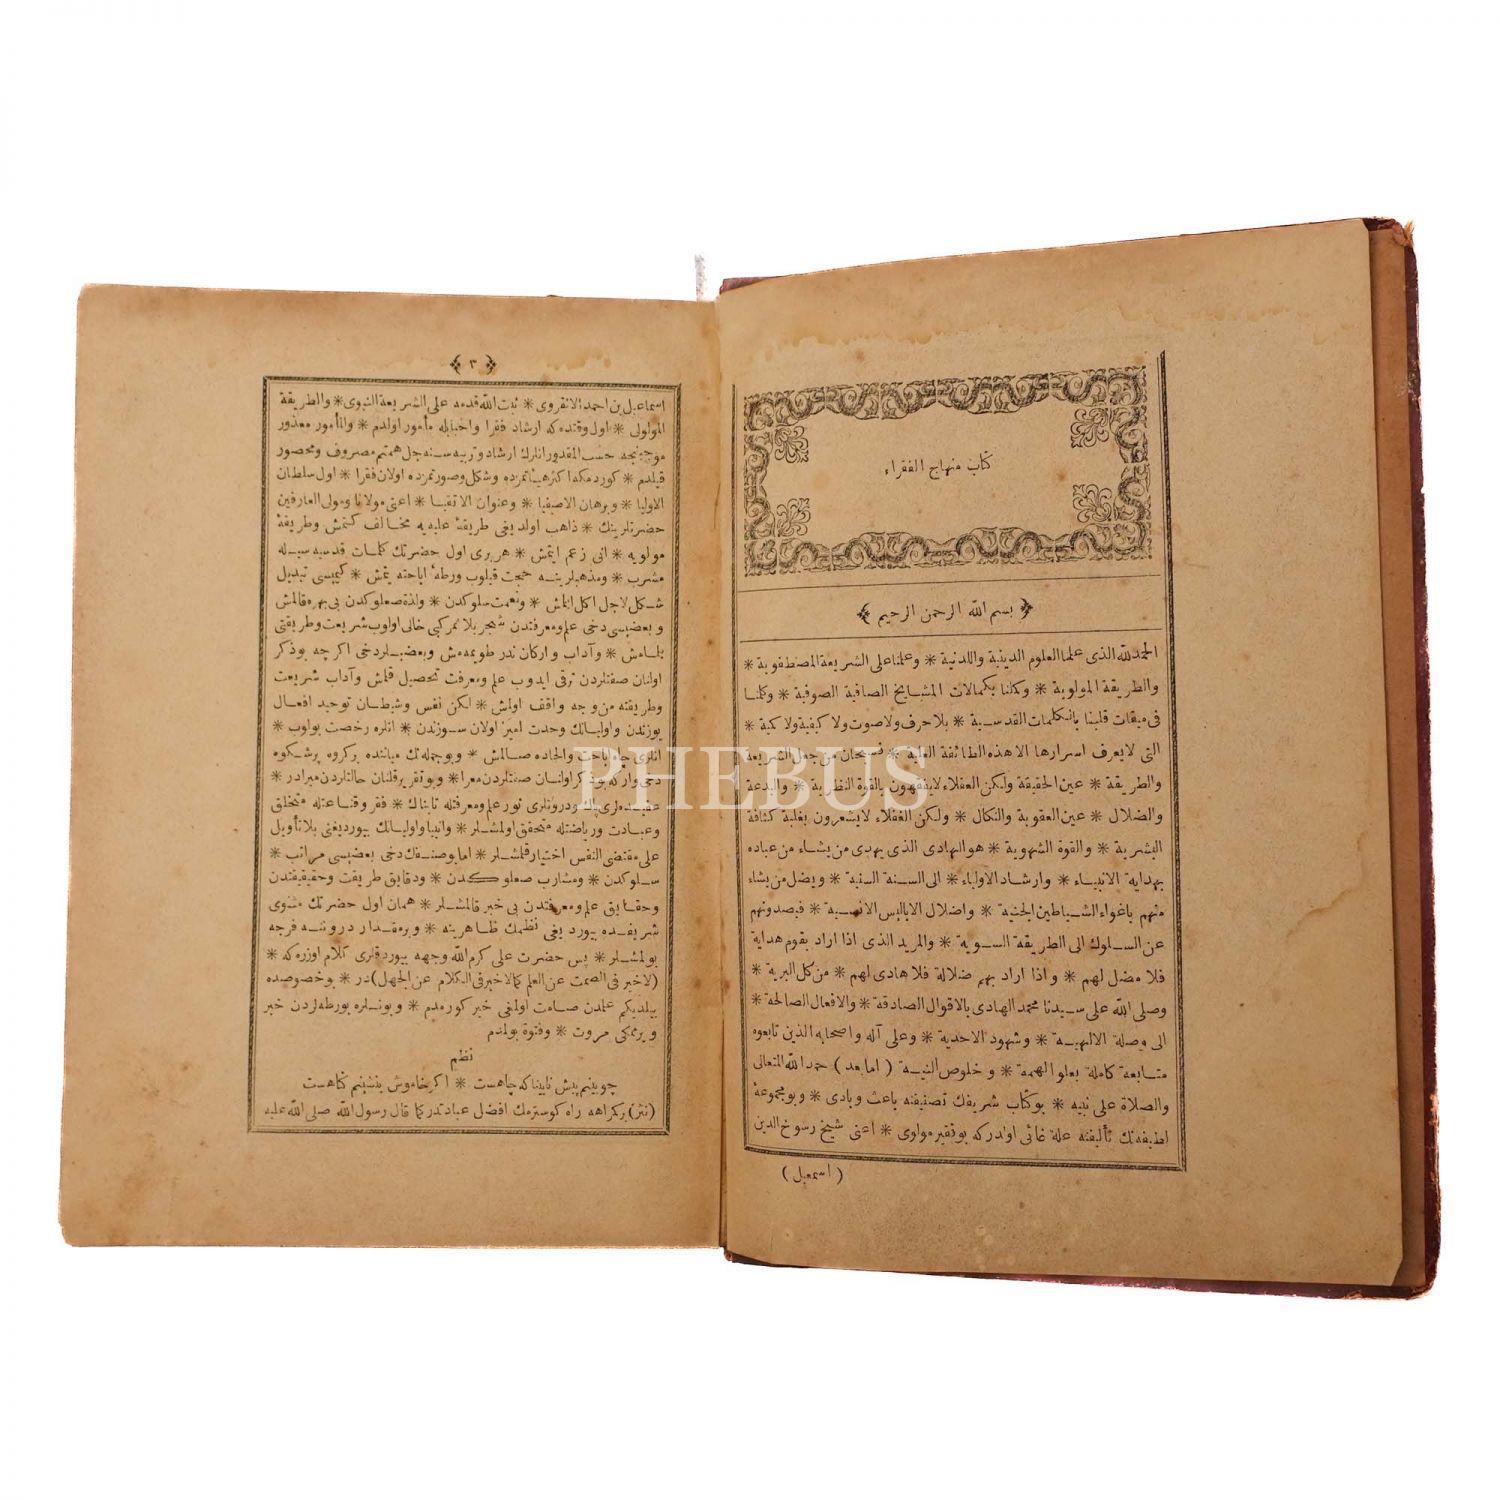 كتاب منهاج الفقراء
بسم الله الرحمن الرحيم
الحمد لله الذى علمنا العلوم الدينية واللدنية * وعملنا على الشريعة المصطفوية *
والطريقة المولوية * وكملنا بكمالات المشايخ الصافية الصوفية * وكلمنا
فى ميقات قلبنا بالكلمات القدسية * بلا حرف ولا صوت ولا كيفية ولا كمية *
التى لا يعرف اسرارها الا هذه الطائفة العلية * فسبحان من جعل الشريعة
والطريقة * عين الحقيقة ولكن العقلاء لا يفقهون بالقوة النظرية * والبدعة
والضلال * عين العقوبة والنكال * ولكن الغفلاء لا يشعرون بغلبة كثافة
البشرية * والقوة الشهوية * هو الهادى الذى يهدى من يشاء من عباده
بهداية الانبياء * وارشاد الاولياء * الى السنة السنية * ويضل من يشاء
منهم باغواء الشياطين الجنية * واضلال الاباليس الانسية * فيصدونهم
عن السلوك الى الطريقة السوية * والمريد الذى اذا اراد بقوم هداية
فلا مضل لهم * واذا اراد بهم ضلالة فلا هادى لهم * من كل البرية *
وصلى الله على سيدنا محمد الهادى بالاقوال الصادقة * والافعال الصالحة *
الى وصلة الالهية * وشهود الاحدية * وعلى آله واصحابه الذين تابعوه
متابعة كاملة بعلو الهمة * وخلوص النية * ( اما بعد ) حمد الله المتعالى
والصلاة على نبيه * بو كتاب شريفك تصنيفنه باعث وبادى * وبو مجموعهٔ
لطيفه نك تأليفنه علة غائى اولدركه بو فقير مولوى * اعنى شيخ رسوخ الدين
( اسمعيل )
٣
اسماعيل بن احمد الانقروى * ثبت الله قدمه على الشريعة النبوى * والطريقة
المولوى * اول وقتده كه ارشاد فقرا واحبابله مأمور اولدم * والمأمور معذور
موجبنجه حسب المقدور انلرك ارشاد وتربيه سنه جل همتم مصروف ومحصور
قيلدم * كوردمكه اكثر هيأتمزده وشكل وصورتمزده اولان فقرا * اول سلطان
الاوليا * وبرهان الاصفيا * وعنوان الاتقيا * اعنى مولانا ومولى العارفين
حضرتلرينك * ذاهب اولديغى طريقهٔ عليه يه مخالف كتمش وطريقهٔ
مولويه * انى زعم ايتمش * هر برى اول حضرتك كلمات قدسيه سيله
مشرب * ومذهبلرينه حجت قيلوب ورطهٔ اباحته يتمش * كيميسى تبديل
شكل لاجل اكل ايتمش * ونعمت سلوكدن * ولذة صعلوكدن بى بهره قالمش
وبعضيسى دخى علم ومعرفتدن شجر بلا ثمر كبى خالى اولوب شريعت وطريقتى
بلمامش * وآداب واركان ندر طويمه مش وبعضيلردخى اكرچه بو ذكر
اولنان صفتلردن ترقى ايدوب علم ومعرفت تحصيل قلمش وآداب شريعت
وطريقته من وجه واقف اولمش * لكن نفس وشيطان توحيد افعال
يوزندن واوليانك وحدت آميز اولان سوزندن * انلره رخصت بولوب *
انلرى چاه اباحت والحاده صالمش * وبو جمله نك ميانده بركروه پرشكوه
دخى واركه بو ذكر اولنان صفتلردن معرا * وبو تقرير قلنان حالتلردن مبرا در *
عقيده لرى پاك ودرونلرى نور علم ومعرفتله تابناك * فقر وقناعتله متخلق
وعبادت ورياضتله متحقق اولمشلر * وانبيا واوليانك بيورديغنى بلا تأويل
على مقتضى النفس اختيار قلمشلر * اما بو صنفك دخى بعضيسى مراتب *
سلوكدن * ومشارب صعلوكدن * ودقايق طريقت وحقيقتدن
وحقايق علم ومعرفتدن بى خبر قالمشلر * همان اول حضرتك مثنوى
شريفده بيورديغى نظمك ظاهرينه * وبرمقدار دروننه فرجه
بولمشلر * پس حضرت على كرم الله وجهه بيوردقلرى كلام اوزره كه *
(لا خير فى الصمت عن العلم كما لا خير فى الكلام عن الجهل) در * بو خصوصده
بيلديكم علمدن صامت اولمغى خير كورمدم * وبونلره بو ورطه لردن خبر
ويرمكى مروت * وفتوة بولمدم
نظم
چو بينم پيش نابينا كه چاهست * اكر خاموش بنشينم كناهست
(نثر) بركمراهه راه كوسترمك افضل عبادتدر كما قال رسول الله صلى الله عليه
PHEBUS